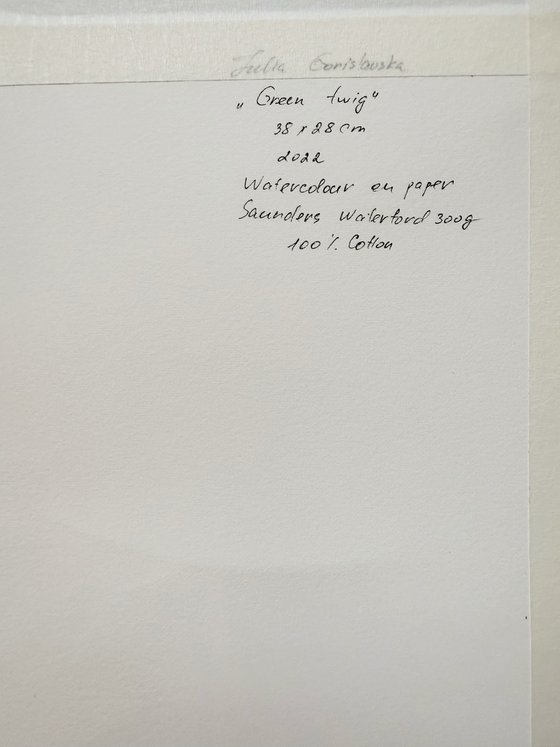 Julia Gorislavska
„Green twig"
38 x 28 cm
2022
Watercolour on paper
Saunders Waterford 300g
100% Cotton